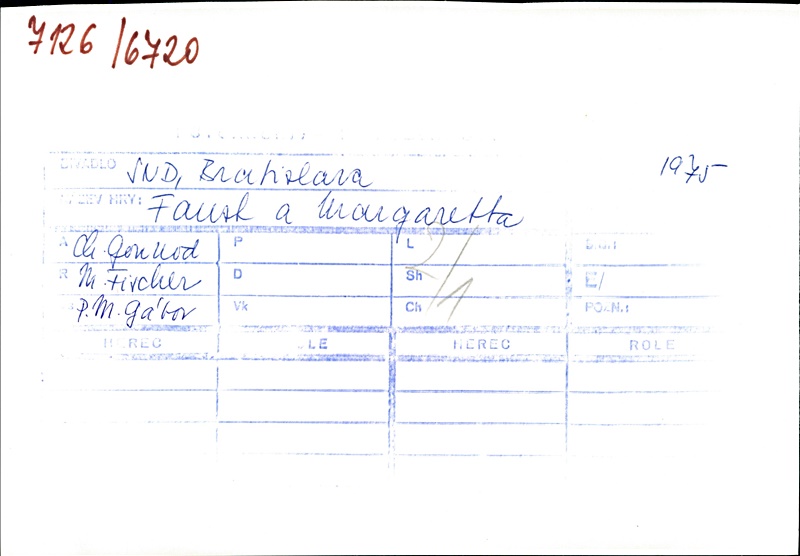 7126/6720
DIVADLO SND, Bratislava 1975
NÁZEV HRY: Faust a Margaretta
A Ch. Gounod P L
R M. Fischer D Sh E/
P. M. Gábor Vk Ch
2/1
HEREC ROLE HEREC ROLE